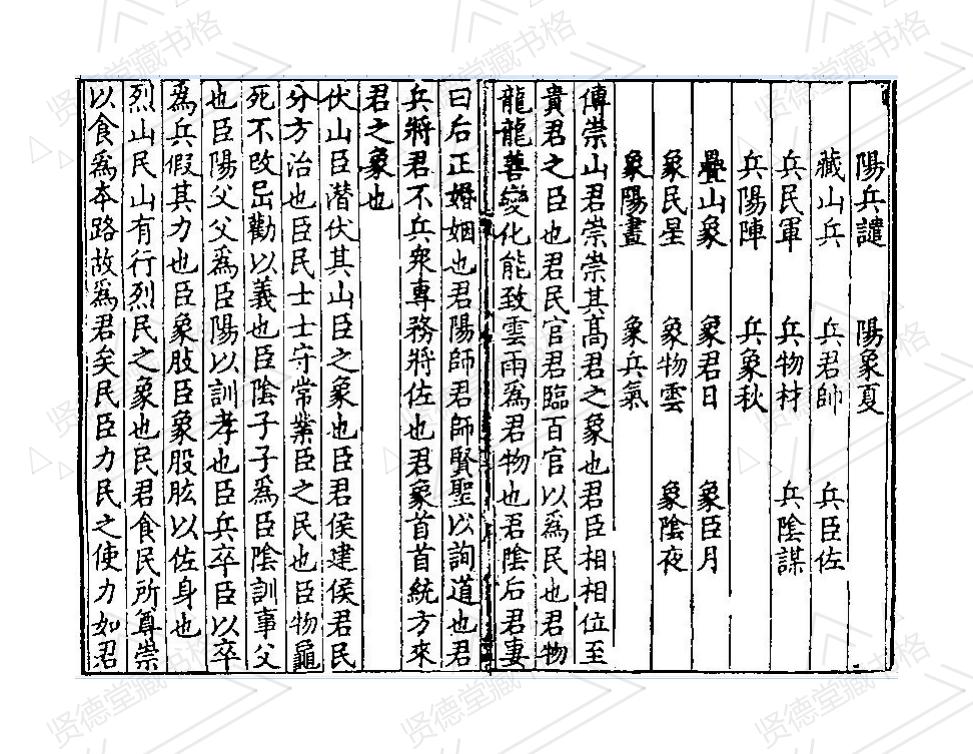 陽兵譴　陽象夏
藏山兵　兵君帥　兵臣佐
兵民軍　兵物材　兵陰謀
兵陽陣　兵象秋
疊山象　象君日　象臣月
象民星　象物雲　象陰夜
象陽晝　象兵氣
傳崇山君崇崇其高君之象也君臣相相位至
貴君之臣也君民官君臨百官以為民也君物
龍龍善變化能致雲雨為君物也君陰后君妻
曰后正婚姻也君陽師君師賢聖以詢道也君
兵將君不兵衆專務將佐也君象首首統方來
君之象也
伏山臣潜伏其山臣之象也臣君侯建侯君民
分方治也臣民士士守常業臣之民也臣物龜
死不改岀勸以義也臣陰子子爲臣陰訓事父
也臣陽父父爲臣陽以訓孝也臣兵卒臣以卒
為兵假其力也臣象肢臣象股肱以佐身也
烈山民山有行烈民之象也民君食民所尊崇
以食爲本路故爲君矣民臣力民之使力如君
贤德堂藏书格